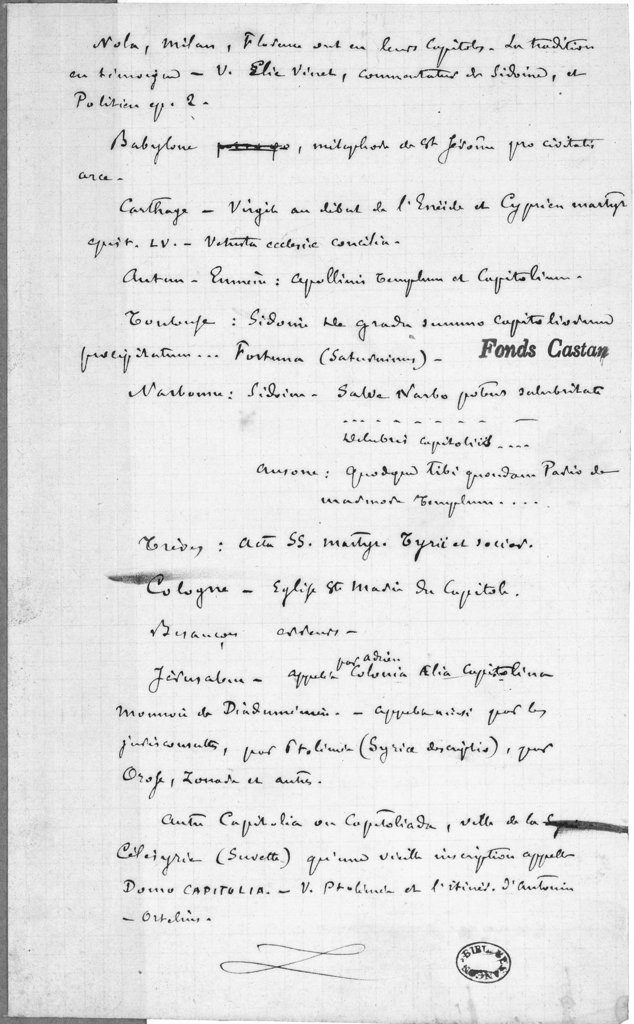 Nola, Milan, Florence ont eu leurs Capitoles. La tradition
en témoigne – V. Elie Vinet, commentateur de Sidoine, et
Politien ep. 2 –
Babylone, métaphore de St Jérôme pro civitatis
arce –
Carthage – Virgile au début de l'Enéide et Cyprien martyr
epist. LV. – Vetusta ecclesiæ concilia –
Autun – Eumène : Apollinis Templum et Capitolium –
Toulouse : Sidoine de gradu summo capitoliorum
præcipitatum... Fortuna (Saturninus) –
Fonds Castan
Narbonne : Sidoine – Salve Narbo potens salubritate
. . . . . . . .
Delubris capitoliis ....
Ausone : Quodque tibi quondam Pario de
marmore Templum ....
Trèves : Acta SS. martyr. Tyrsi et socior.
Cologne – Eglise Ste Marie du Capitole.
Besançon
Jérusalem – appelée par Adrien Colonia Ælia Capitolina
Monnaie de Diaduménien. – appelée ainsi par les
jurisconsultes, par Ptolémée (Syriæ descriptio), par
Orose, Zonare et autres.
Autre Capitolia ou Capitoliada, ville de la
Célésyrie (Suvette) qu'une vieille inscription appelle
Domo CAPITOLIA. – V. Ptolémée et l'itinér. d'Antonin
– Ortelius –
BIBL. BESANÇON